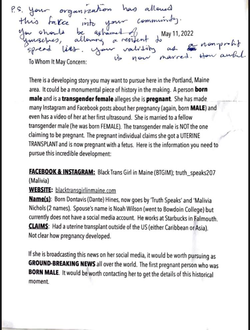 P.S. Your organization has allowed
this fake into your community.
You should be ashamed of May 11, 2022
yourselves, allowing a resident to
spread lies. Your validity as a nonprofit
is now marred. How awful
To Whom It May Concern:
There is a developing story you may want to pursue here in the Portland, Maine
area. It could be a monumental piece of history in the making. A person born
male and is a transgender female alleges she is pregnant. She has made
many Instagram and Facebook posts about her pregnancy (again, born MALE) and
even has a video of her at her first ultrasound. She is married to a fellow
transgender male (he was born FEMALE). The transgender male is NOT the one
claiming to be pregnant. The pregnant individual claims she got a UTERINE
TRANSPLANT and is now pregnant with a fetus. Here is the information you need to
pursue this incredible development:
FACEBOOK & INSTAGRAM: Black Trans Girl in Maine (BTGIM); truth_speaks207
(Malivia)
WEBSITE: blacktransgirlinmaine.com
Name(s): Born Dontavis (Dante) Hines, now goes by 'Truth Speaks' and 'Malivia
Nichols (2 names). Spouse's name is Noah Wilson (went to Bowdoin College) but
currently does not have a social media account. He works at Starbucks in Falmouth.
CLAIMS: Had a uterine transplant outside of the US (either Caribbean or Asia).
Not clear how pregnancy developed.
If she is broadcasting this news on her social media, it would be worth pursuing as
GROUND-BREAKING NEWS all over the world. The first pregnant person who was
BORN MALE. It would be worth contacting her to get the details of this historical
moment.